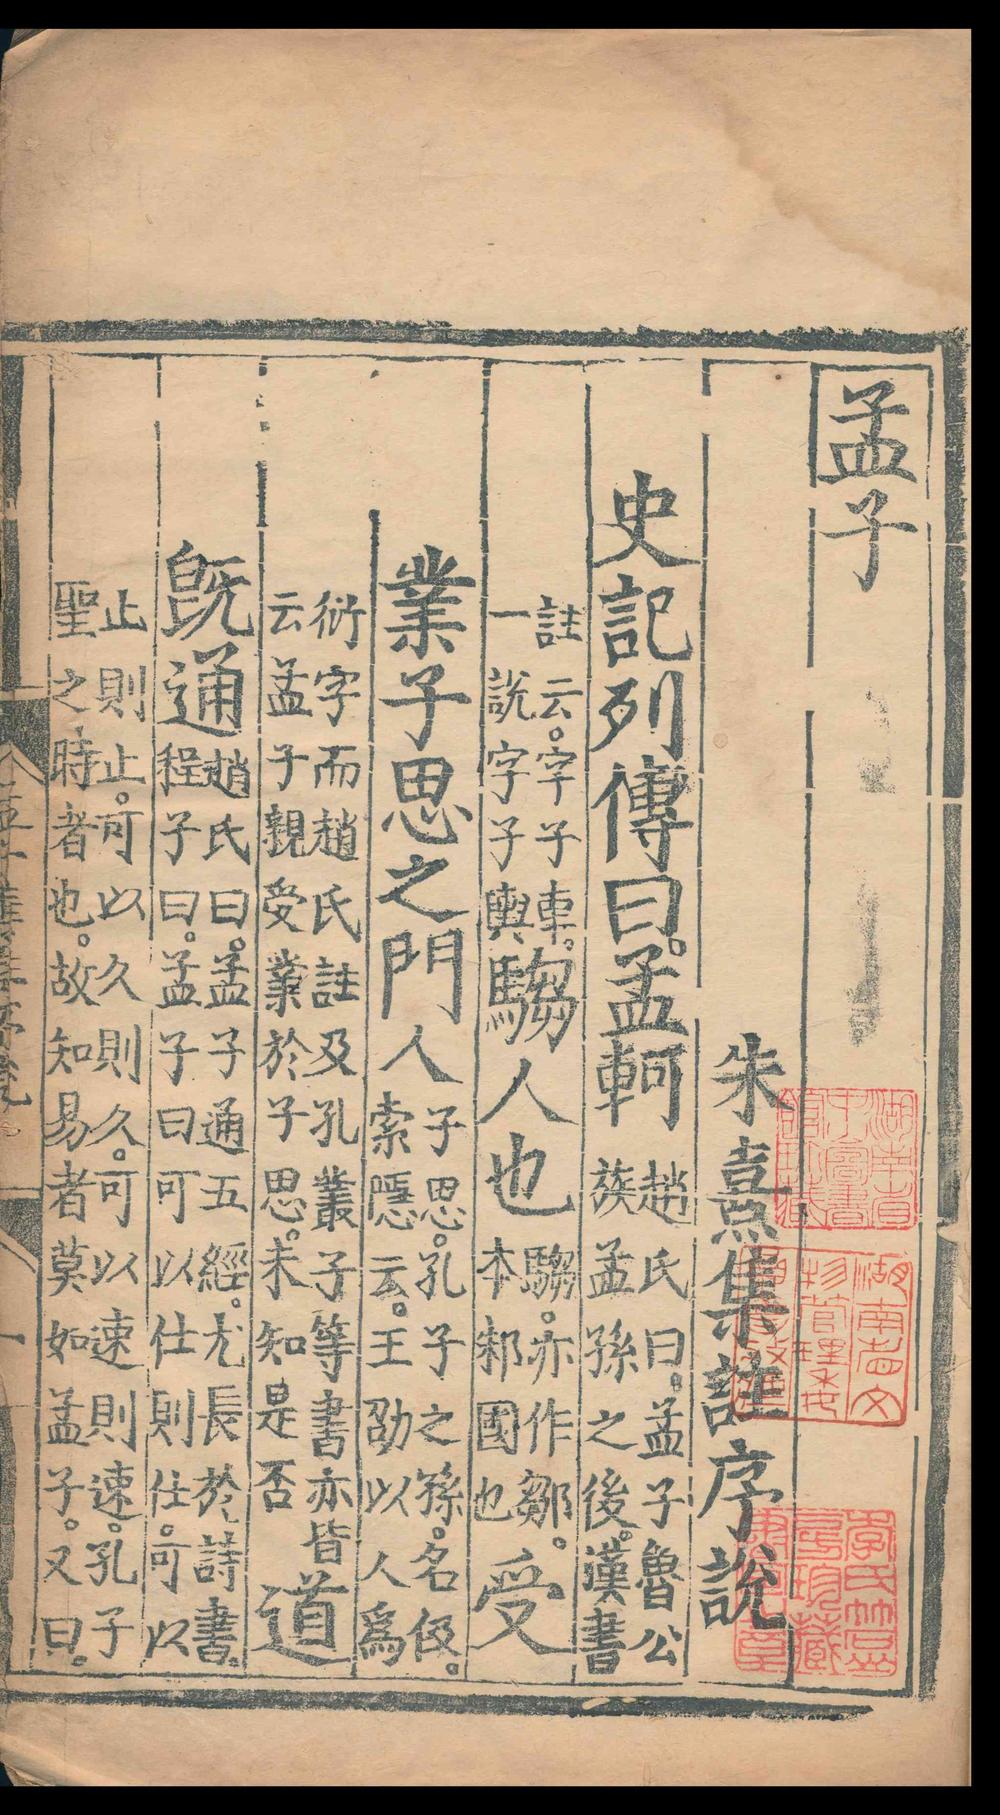 孟子
朱熹集註序說
史記列傳曰。孟軻
趙氏曰。孟子魯公
族孟孫之後。漢書
註云。字子車。
一說字子輿
騶人也
騶。亦作鄒。
本邾國也
受
業子思之門人
子思。孔子之孫。名伋。
索隱云。王劭以人爲
衍字而趙氏註及孔叢子等書亦皆
云孟子親受業於子思。未知是否
道
旣通
趙氏曰。孟子通五經。尤長於詩書。
程子曰。孟子曰可以仕則仕。可以
止則止。可以久則久。可以速則速。孔子
聖之時者也。故知易者莫如孟子。又曰。
湖南省文
物管理委